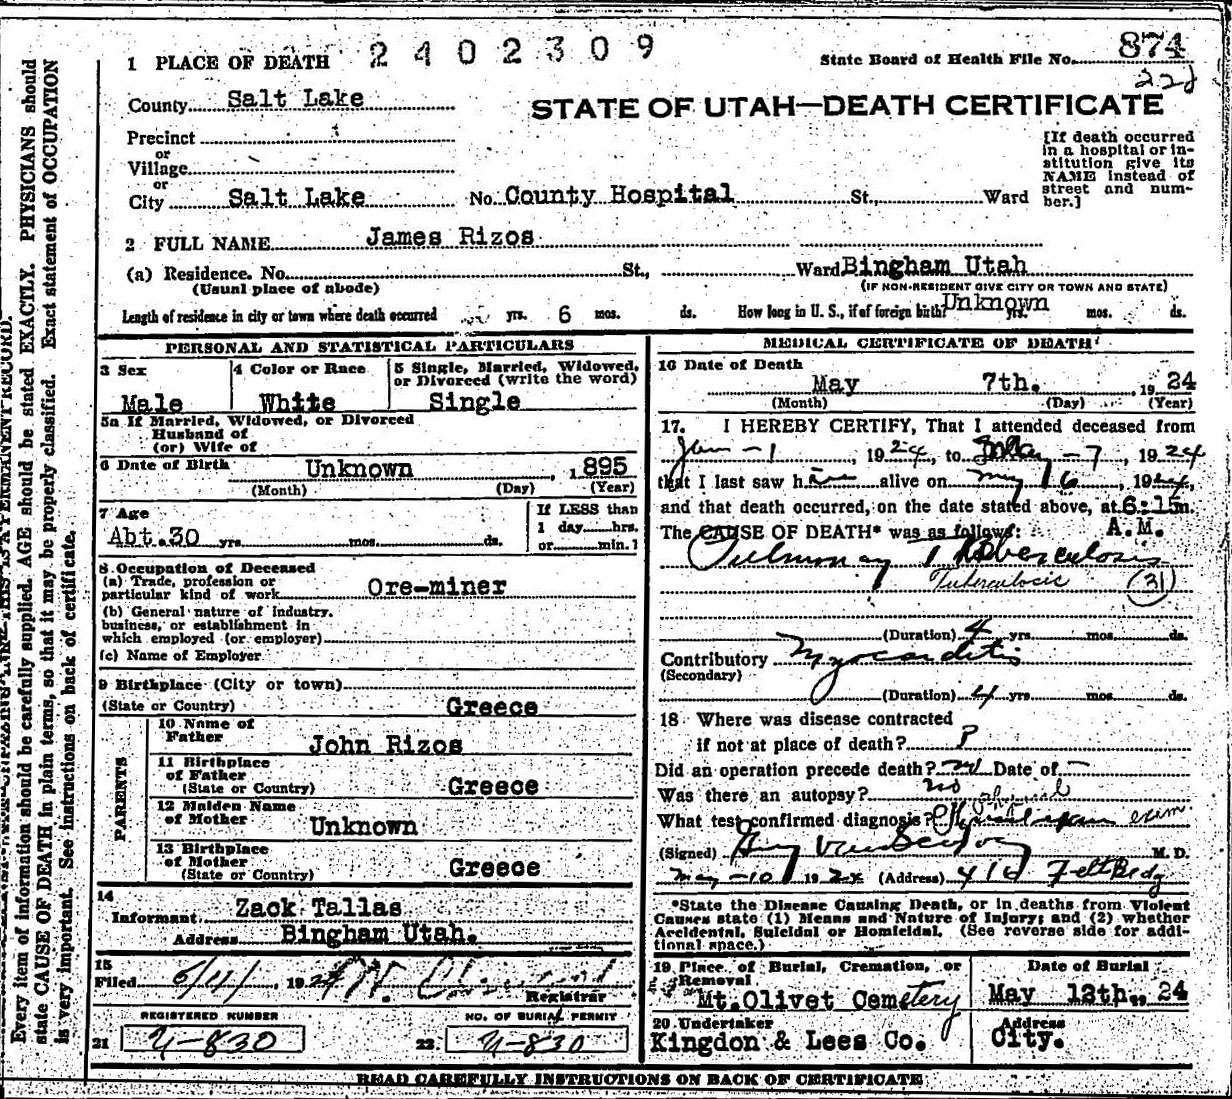 2402309
State Board of Health File No. 874
228
1 PLACE OF DEATH
County Salt Lake
STATE OF UTAH—DEATH CERTIFICATE
Precinct
or
Village
or
City Salt Lake No. County Hospital St., Ward
[If death occurred
in a hospital or in-
stitution give its
NAME instead of
street and num-
ber.]
2 FULL NAME James Rizos
(a) Residence. No. St., Ward Bingham Utah
(Usual place of abode) (IF NON-RESIDENT GIVE CITY OR TOWN AND STATE)
Length of residence in city or town where death occurred yrs. 6 mos. ds. How long in U. S., if of foreign birth? Unknown yrs. mos. ds.
PERSONAL AND STATISTICAL PARTICULARS
3 Sex
Male
4 Color or Race
White
5 Single, Married, Widowed,
or Divorced (write the word)
Single
5a If Married, Widowed, or Divorced
Husband of
(or) Wife of
6 Date of Birth Unknown , 1895
(Month) (Day) (Year)
7 Age
Abt. 30 yrs. mos. ds.
If LESS than
1 day hrs.
or min.?
8 Occupation of Deceased
(a) Trade, profession or
particular kind of work Ore-miner
(b) General nature of industry,
business, or establishment in
which employed (or employer)
(c) Name of Employer
9 Birthplace (City or town)
(State or Country) Greece
PARENTS
10 Name of
Father John Rizos
11 Birthplace
of Father
(State or Country) Greece
12 Maiden Name
of Mother Unknown
13 Birthplace
of Mother
(State or Country) Greece
14
Informant Zack Tallas
Address Bingham Utah.
15
Filed 5/11/, 1924
Registrar
REGISTERED NUMBER
21 4-830
NO. OF BURIAL PERMIT
22 4-830
MEDICAL CERTIFICATE OF DEATH
16 Date of Death
May 7th. , 1924
(Month) (Day) (Year)
17. I HEREBY CERTIFY, That I attended deceased from
Jan - 1, 1924, to May - 7, 1924
that I last saw him alive on May 6, 1924,
and that death occurred, on the date stated above, at 6:15 m.
A.M.
The CAUSE OF DEATH* was as follows:
Pulmonary Tuberculosis
Tuberculosis (31)
(Duration) 4 yrs. mos. ds.
Contributory Myocarditis
(Secondary)
(Duration) 4 yrs. mos. ds.
18 Where was disease contracted
if not at place of death? ?
Did an operation precede death? no Date of -
Was there an autopsy? no
What test confirmed diagnosis? Physical exam
(Signed) M. D.
May - 10, 1924 (Address) 410 Felt Bldg
*State the Disease Causing Death, or in deaths from Violent
Causes state (1) Means and Nature of Injury; and (2) whether
Accidental, Suicidal or Homicidal. (See reverse side for addi-
tional space.)
19 Place of Burial, Cremation, or
Removal
Mt. Olivet Cemetery
Date of Burial
May 12th, 24
20 Undertaker
Kingdon & Lees Co.
Address
City.
READ CAREFULLY INSTRUCTIONS ON BACK OF CERTIFICATE
Every item of information should be carefully supplied. AGE should be stated EXACTLY. PHYSICIANS should
state CAUSE OF DEATH in plain terms, so that it may be properly classified. Exact statement of OCCUPATION
is very important. See instructions on back of certificate.